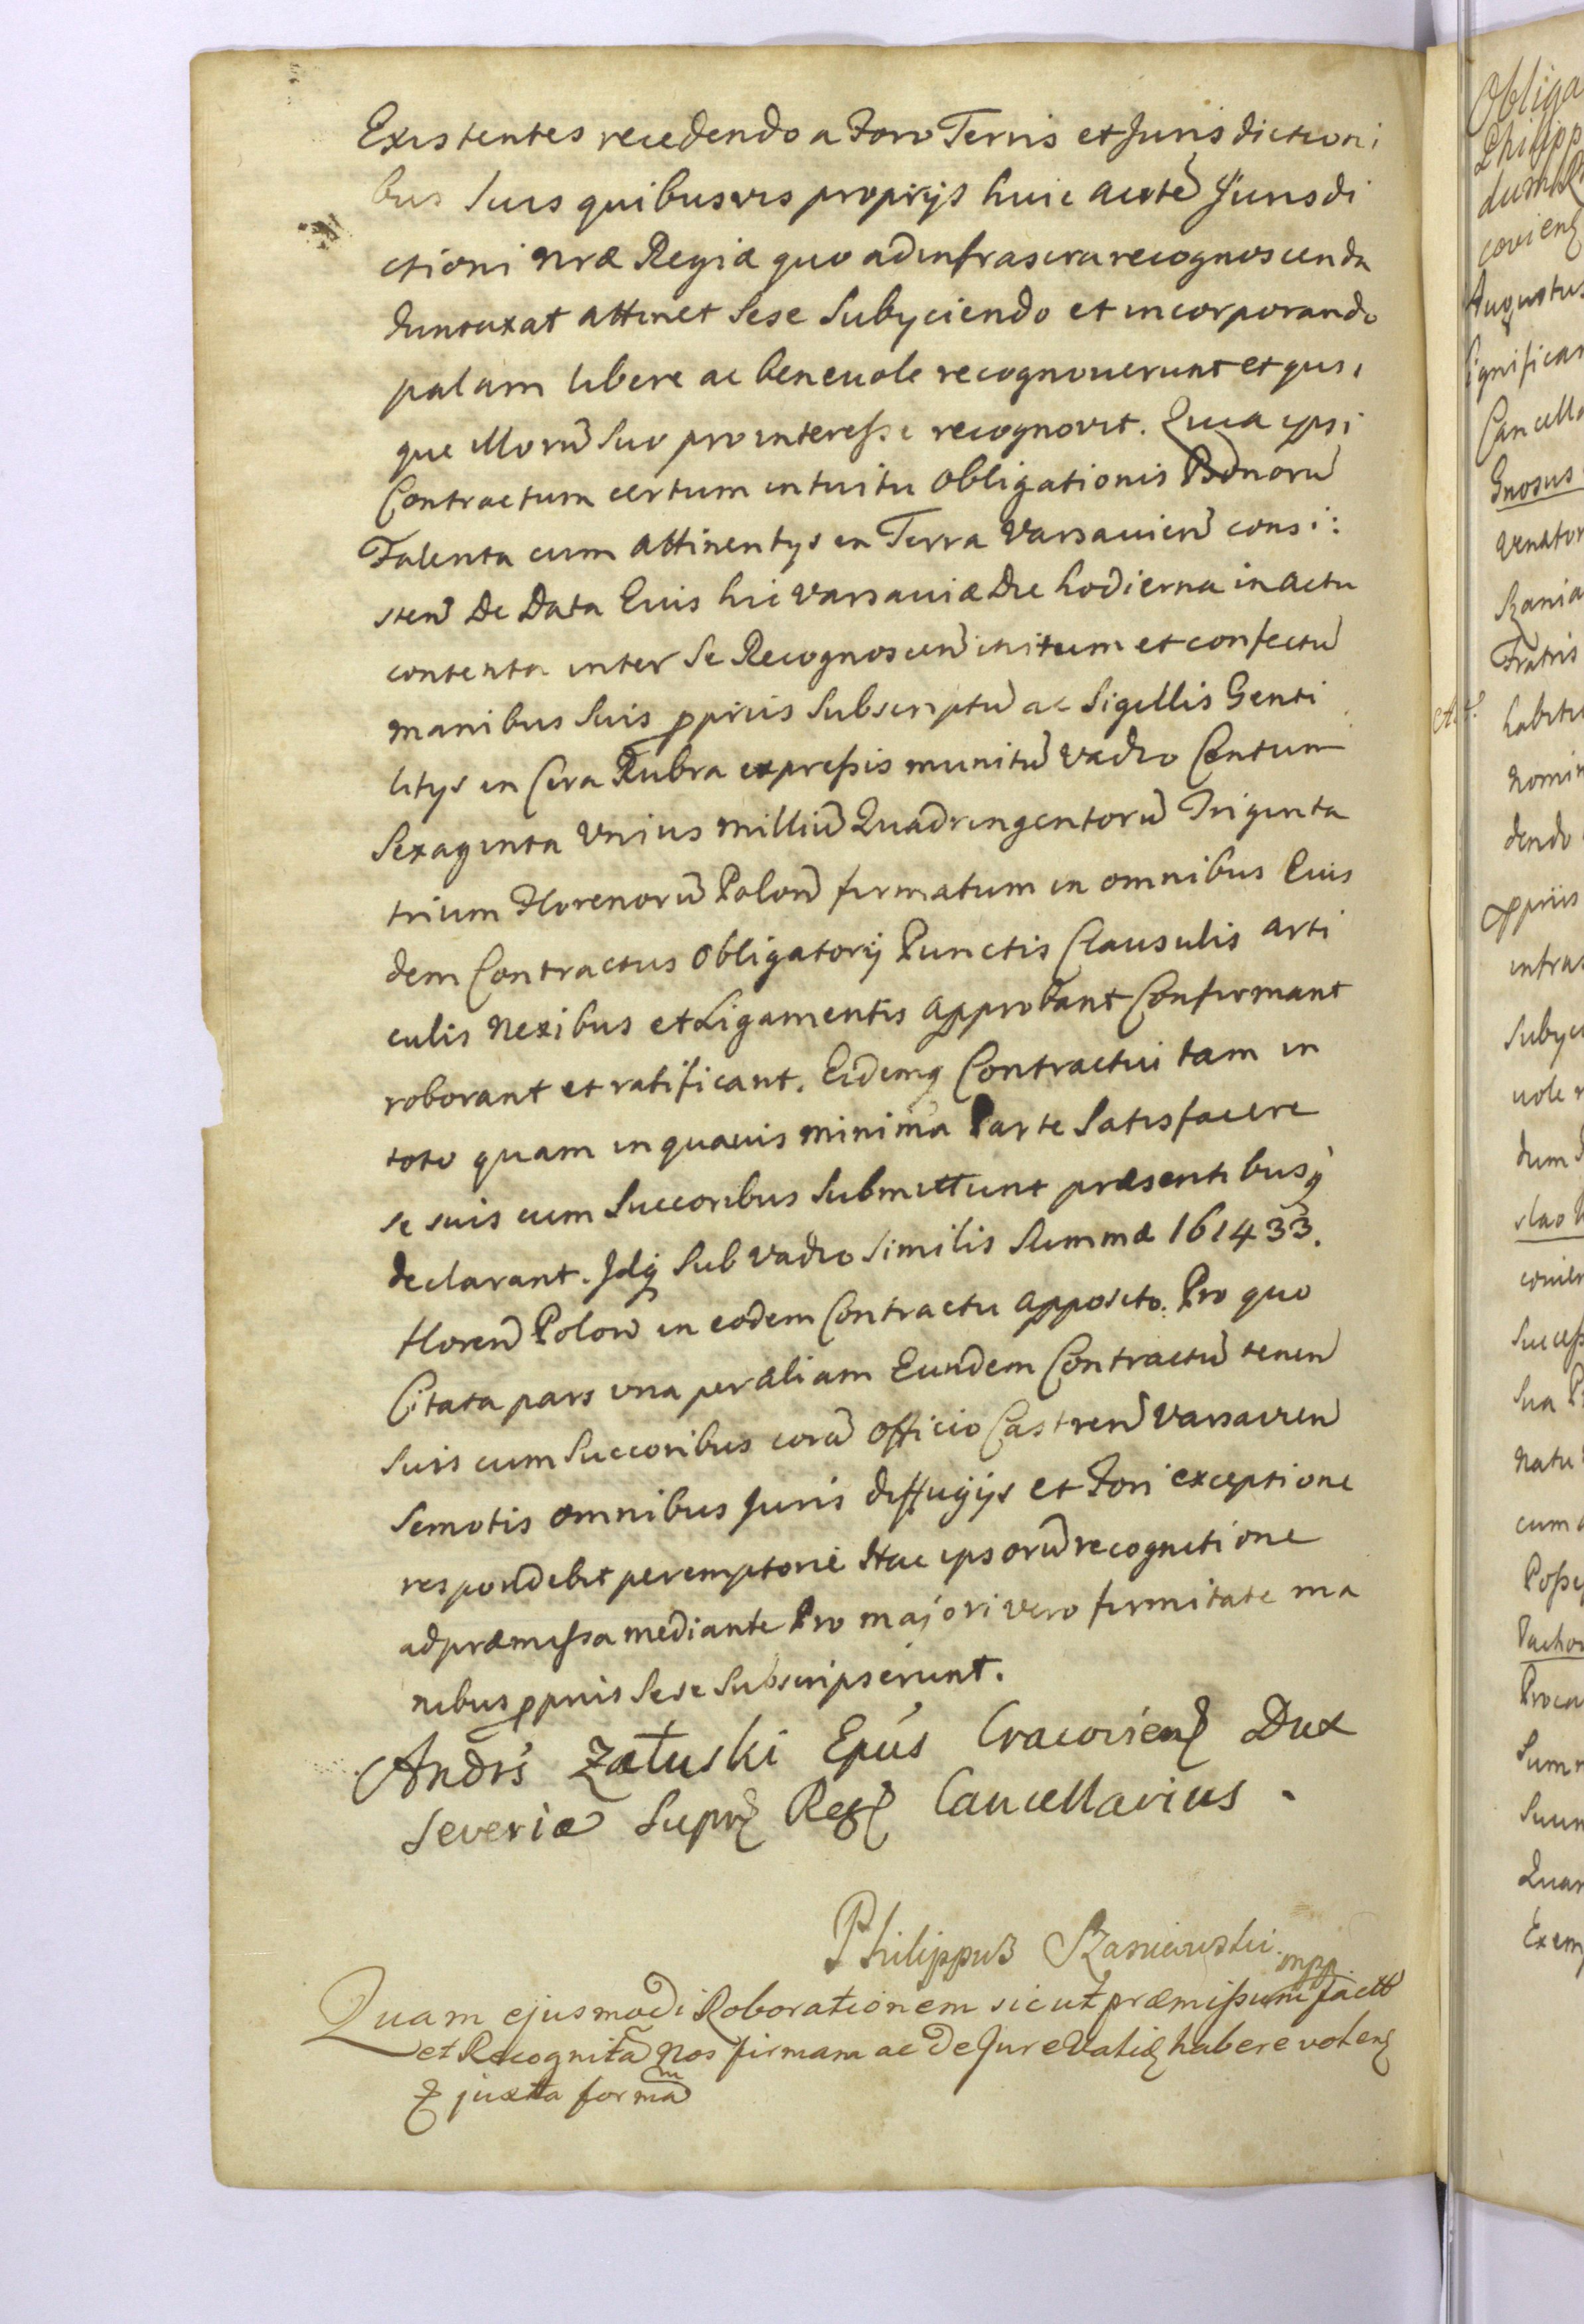 Existentes recedendo a Foro Terris et Jurisdictioni
bus suis quibusvis proprijs huic autẽ Jurisdi
ctioni nræ Regiæ quo ad infrascra recognoscenda
duntaxat attinet sese subyciendo et incorporando
palam libere ac beneuole recognouerunt et quis,
que illorũ suo pro interesse recognovit. Quia ipsi
Contractum certum intuitu obligationis Bonorũ
Falenta cum attinentys in Terra Varsauien̄ consi:
sten̄ De Data Eius hic Varsauiæ Die hodierna in actu
contenta inter se Recognoscen̄ initum et confectũ
manibus suis ppriis subscriptũ ac Sigillis Genti
litys in Cera Rubra expressis munitũ vadio Centum
Sexaginta Unius milliũ Quadringentorũ Triginta
trium Florenorũ Polon̄ firmatum in omnibus Eius
dem Contractus obligatorij Punctis Clausulis arti
culis nexibus et Ligamentis approbant Confirmant
roborant et ratificant. Eidemq Contractui tam in
toto quam in quauis minima Parte Satisfacere
se suis cum Succoribus submittunt præsentibusq
declarant. Jdq Sub vadio similis summæ 161433.
floren̄ Polon̄ in eodem Contractu apposito. Pro quo
Citata pars una per aliam Eundem Contractũ tenen̄
suis cum Succoribus corã officio Castren̄ Varsauien̄
semotis omnibus Juris diffugijs et Fori exceptione
respondebit peremptorie Hac ipsorũ recognitione
ad præmissa mediante Pro majori vero firmitate ma
nibus ppriis sese subscripserunt.
Andrs Załuski Epus Cracovien Dux
Severiæ Supr Reg Cancellarius.
Philippus Szaniawski
mpp
Quam ejusmodi Roborationem sicut præmissum factã
et Recognitã Nos firmam ac De Jure Valid habere volen
juxta formã
Obliga
Philipp
covien
Augustus
significam
Cancella
Gnosus
venator
Szania
Fratris
A. S.
habitu
nomin
dendo
ppriis
infras
subyci
uole r
dum
slao
covien
Success
sua P
natu
cum a
Posse
Pachon
Proca
Summ
Suum
Quam
Exem